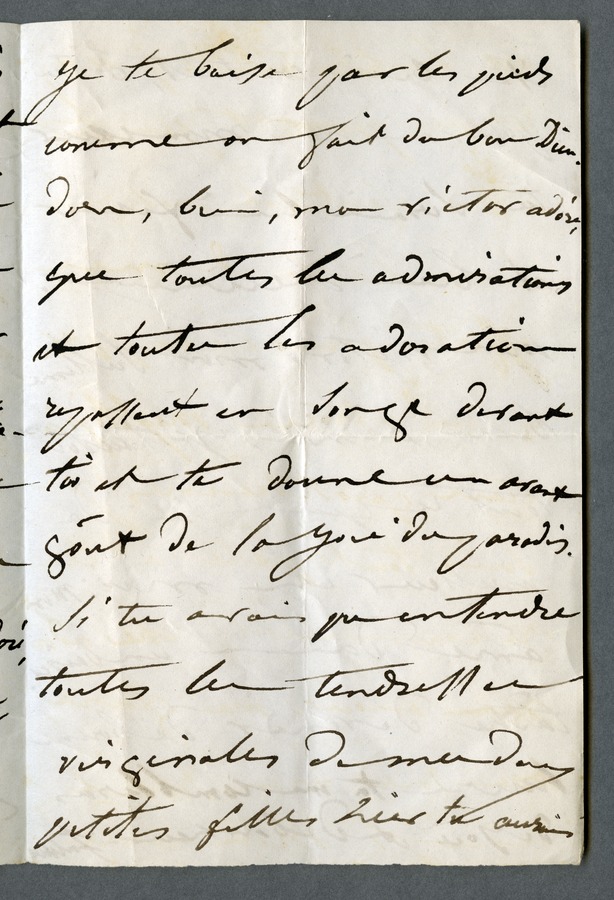 je te baise par les pieds
comme on fait du bon Dieu.
dors, bien, mon victor adoré,
que toutes les admirations
et toutes les adorations
repassent en songe devant
toi et te donne un avant
goût de la joie du paradis.
Si tu avais pu entendre
toutes les tendresses
virginales de mes deux
petites filles hier tu aurais